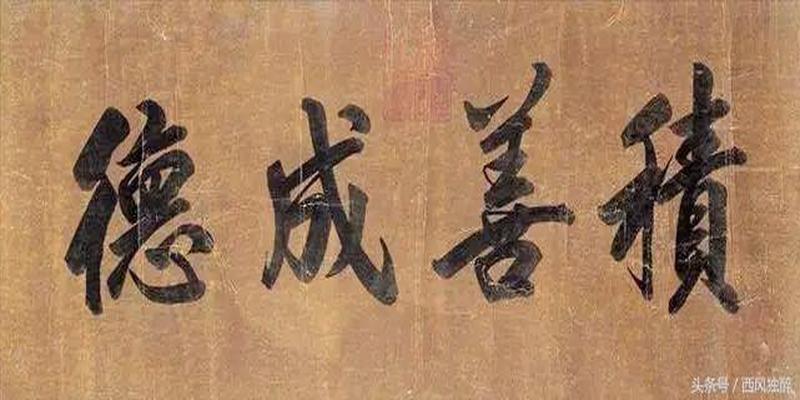 積善成德
头条号／西风独醉